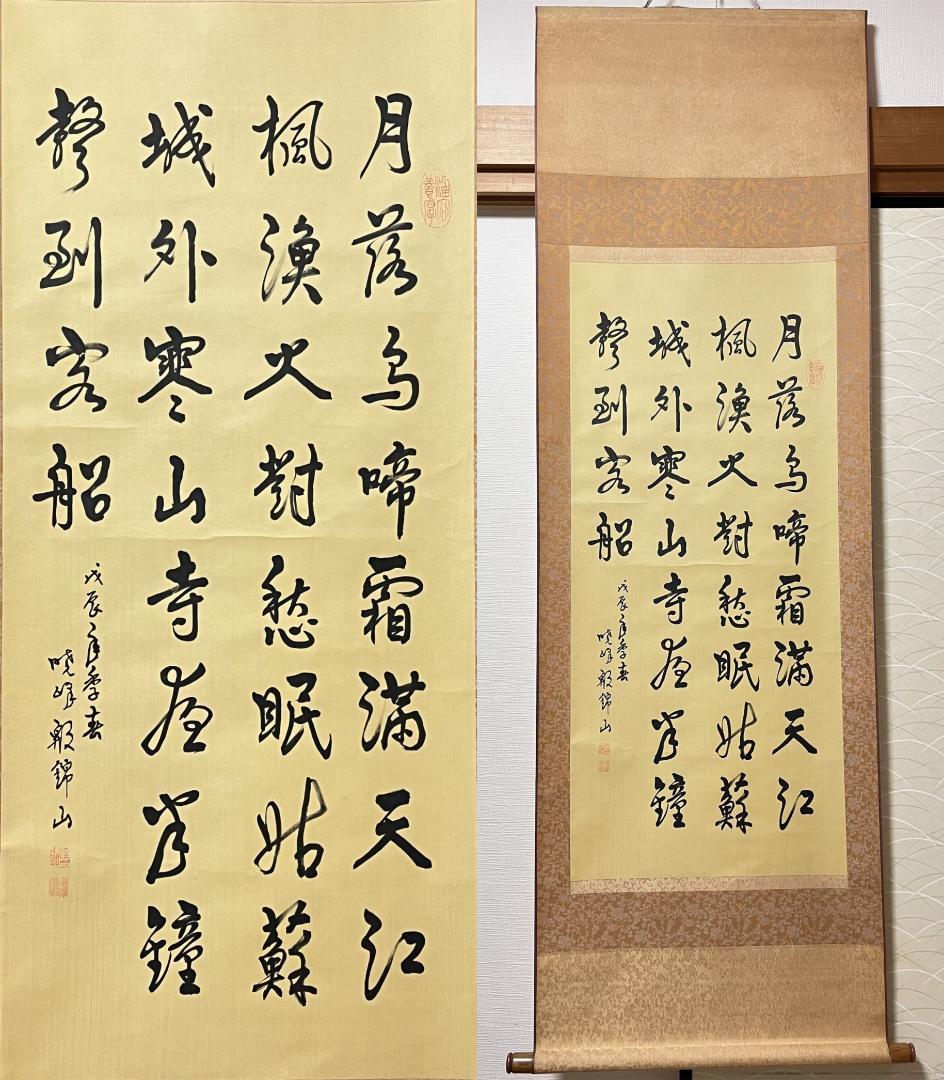 月落烏啼霜滿天江
楓漁火對愁眠姑蘇
城外寒山寺夜半鐘
聲到客船
戊辰年季春
曉峰殷錦山
月落烏啼霜滿天江
楓漁火對愁眠姑蘇
城外寒山寺夜半鐘
聲到客船
戊辰年季春
曉峰殷錦山